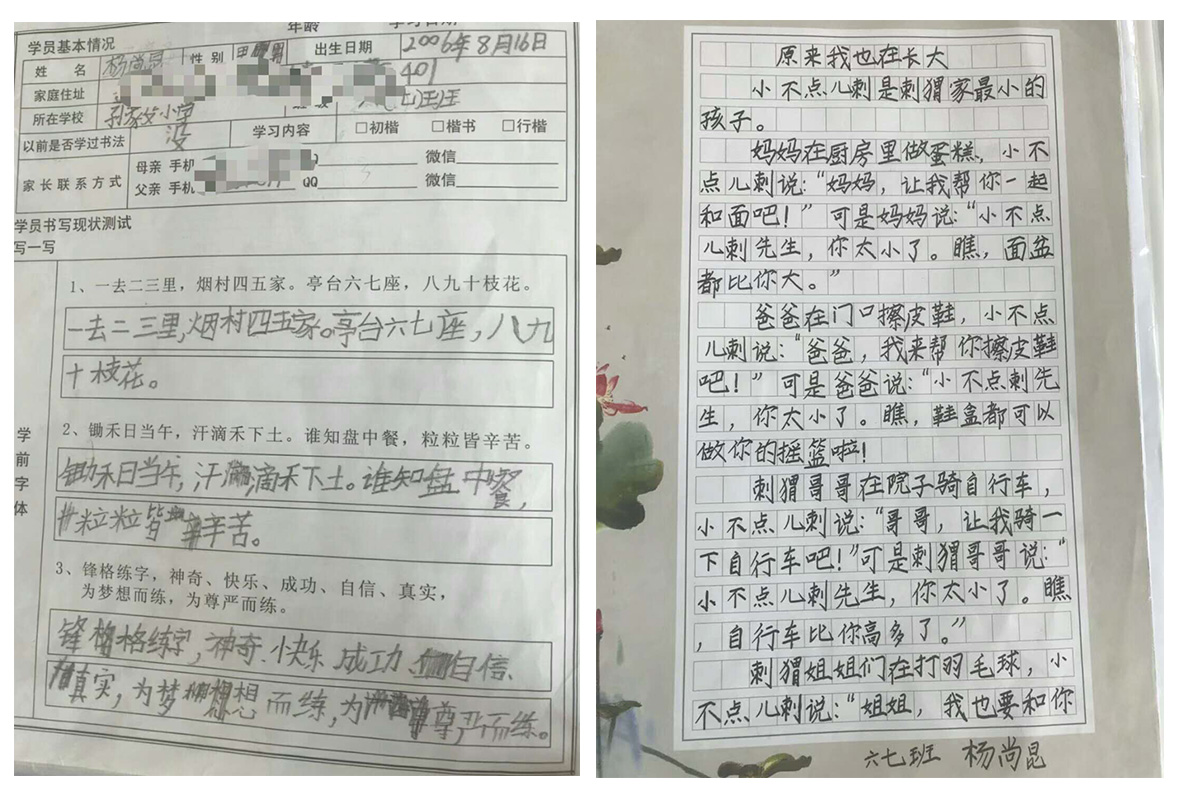 年龄
学习日期
学员基本情况
姓 名 杨尚昆 性 别 男 出生日期 2006年8月16日
家庭住址 401
所在学校 孙家坟小学 班
以前是否学过书法 没 学习内容 □初楷 □楷书 □行楷
家长联系方式
母亲 手机 QQ 微信
父亲 手机 QQ 微信
学员书写现状测试
写一写
学前字体
1、一去二三里，烟村四五家。亭台六七座，八九十枝花。
一去二三里，烟村四五家。亭台六七座，八九
十枝花。
2、锄禾日当午，汗滴禾下土。谁知盘中餐，粒粒皆辛苦。
锄禾日当午，汗滴禾下土。谁知盘中餐，
粒粒皆辛苦。
3、锋格练字，神奇、快乐、成功、自信、真实，
为梦想而练，为尊严而练。
锋格练字，神奇、快乐、成功、自信、
真实，为梦想而练，为尊严而练。
原来我也在长大
小不点儿刺是刺猬家最小的
孩子。
妈妈在厨房里做蛋糕，小不
点儿刺说：“妈妈，让我帮你一起
和面吧！”可是妈妈说：“小不点
儿刺先生，你太小了。瞧，面盆
都比你大。”
爸爸在门口擦皮鞋，小不点
儿刺说：“爸爸，我来帮你擦皮鞋
吧！”可是爸爸说：“小不点刺先
生，你太小了。瞧，鞋盒都可以
做你的摇篮啦！
刺猬哥哥在院子骑自行车，
小不点儿刺说：“哥哥，让我骑一
下自行车吧！”可是刺猬哥哥说：“
小不点儿刺先生，你太小了。瞧
，自行车比你高多了。”
刺猬姐姐们在打羽毛球，小
不点儿刺说：“姐姐，我也要和你
六七班 杨尚昆